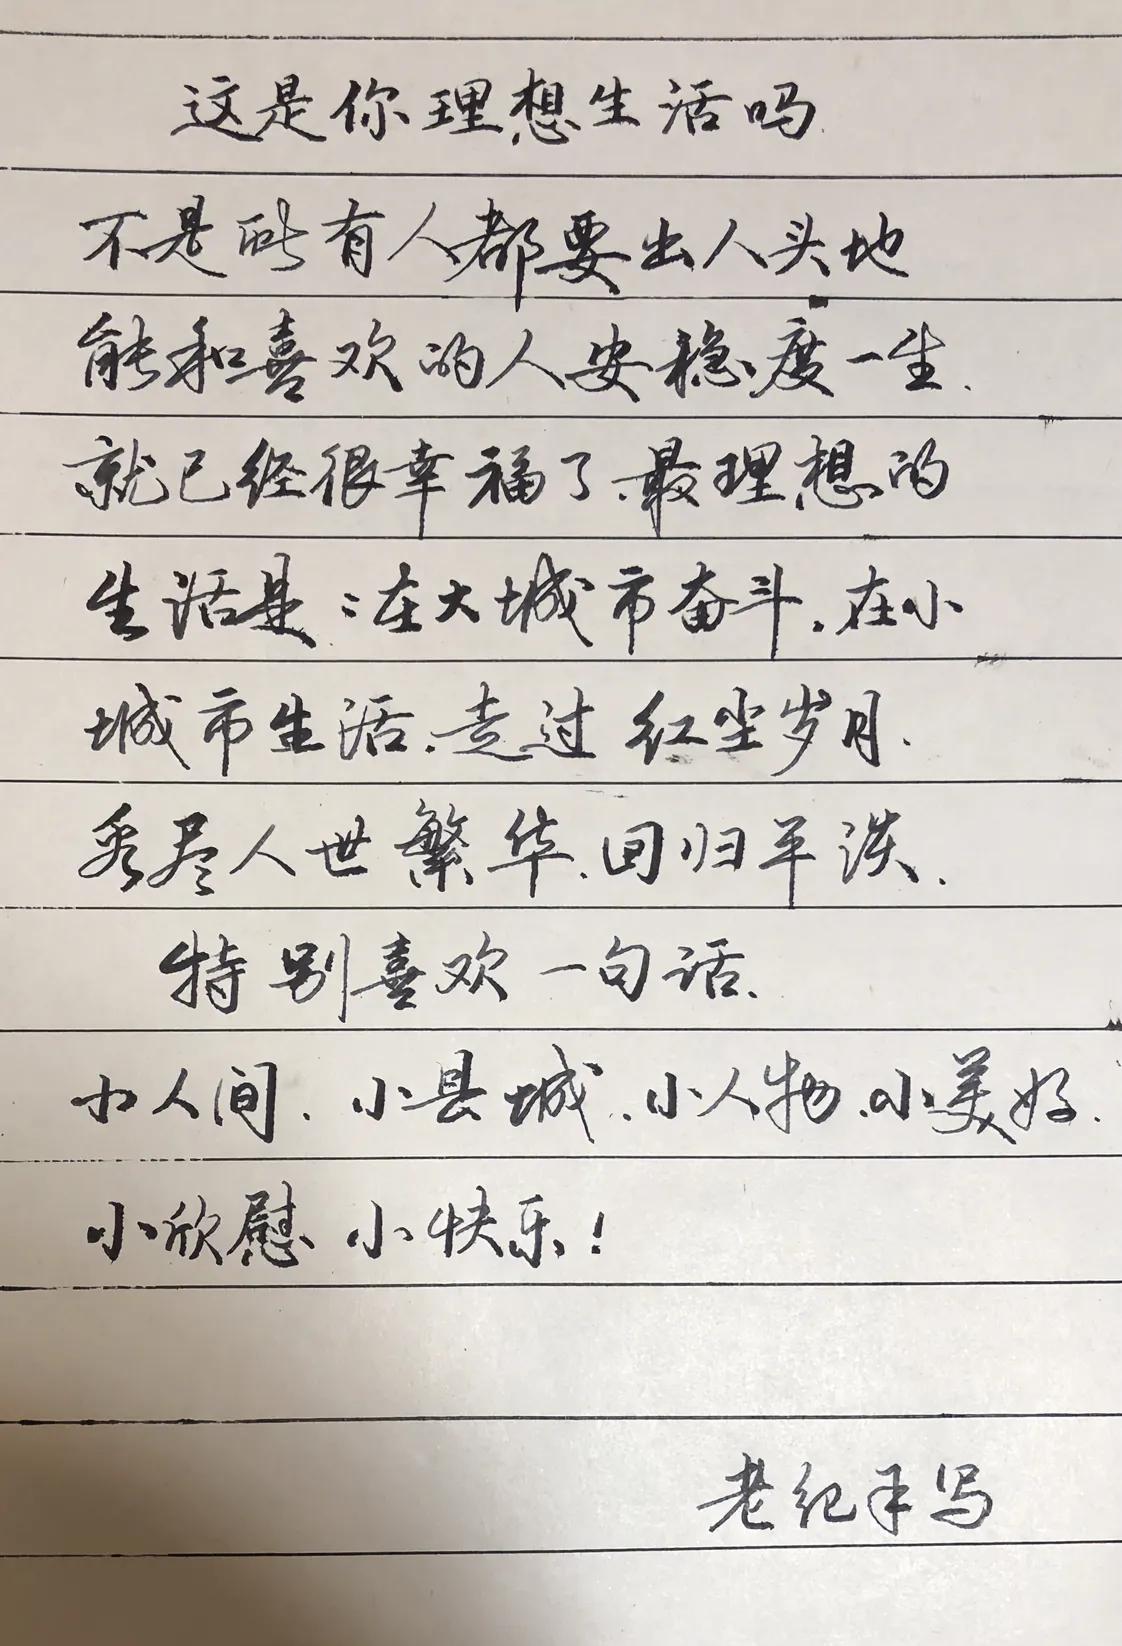 这是你理想生活吗
不是所有人都要出人头地
能和喜欢的人安稳度一生.
就已经很幸福了.最理想的
生活是:在大城市奋斗.在小
城市生活.走过红尘岁月.
看尽人世繁华.回归平淡.
特别喜欢一句话.
小人间.小县城.小人物.小美好.
小欣慰 小快乐!
老纪手写